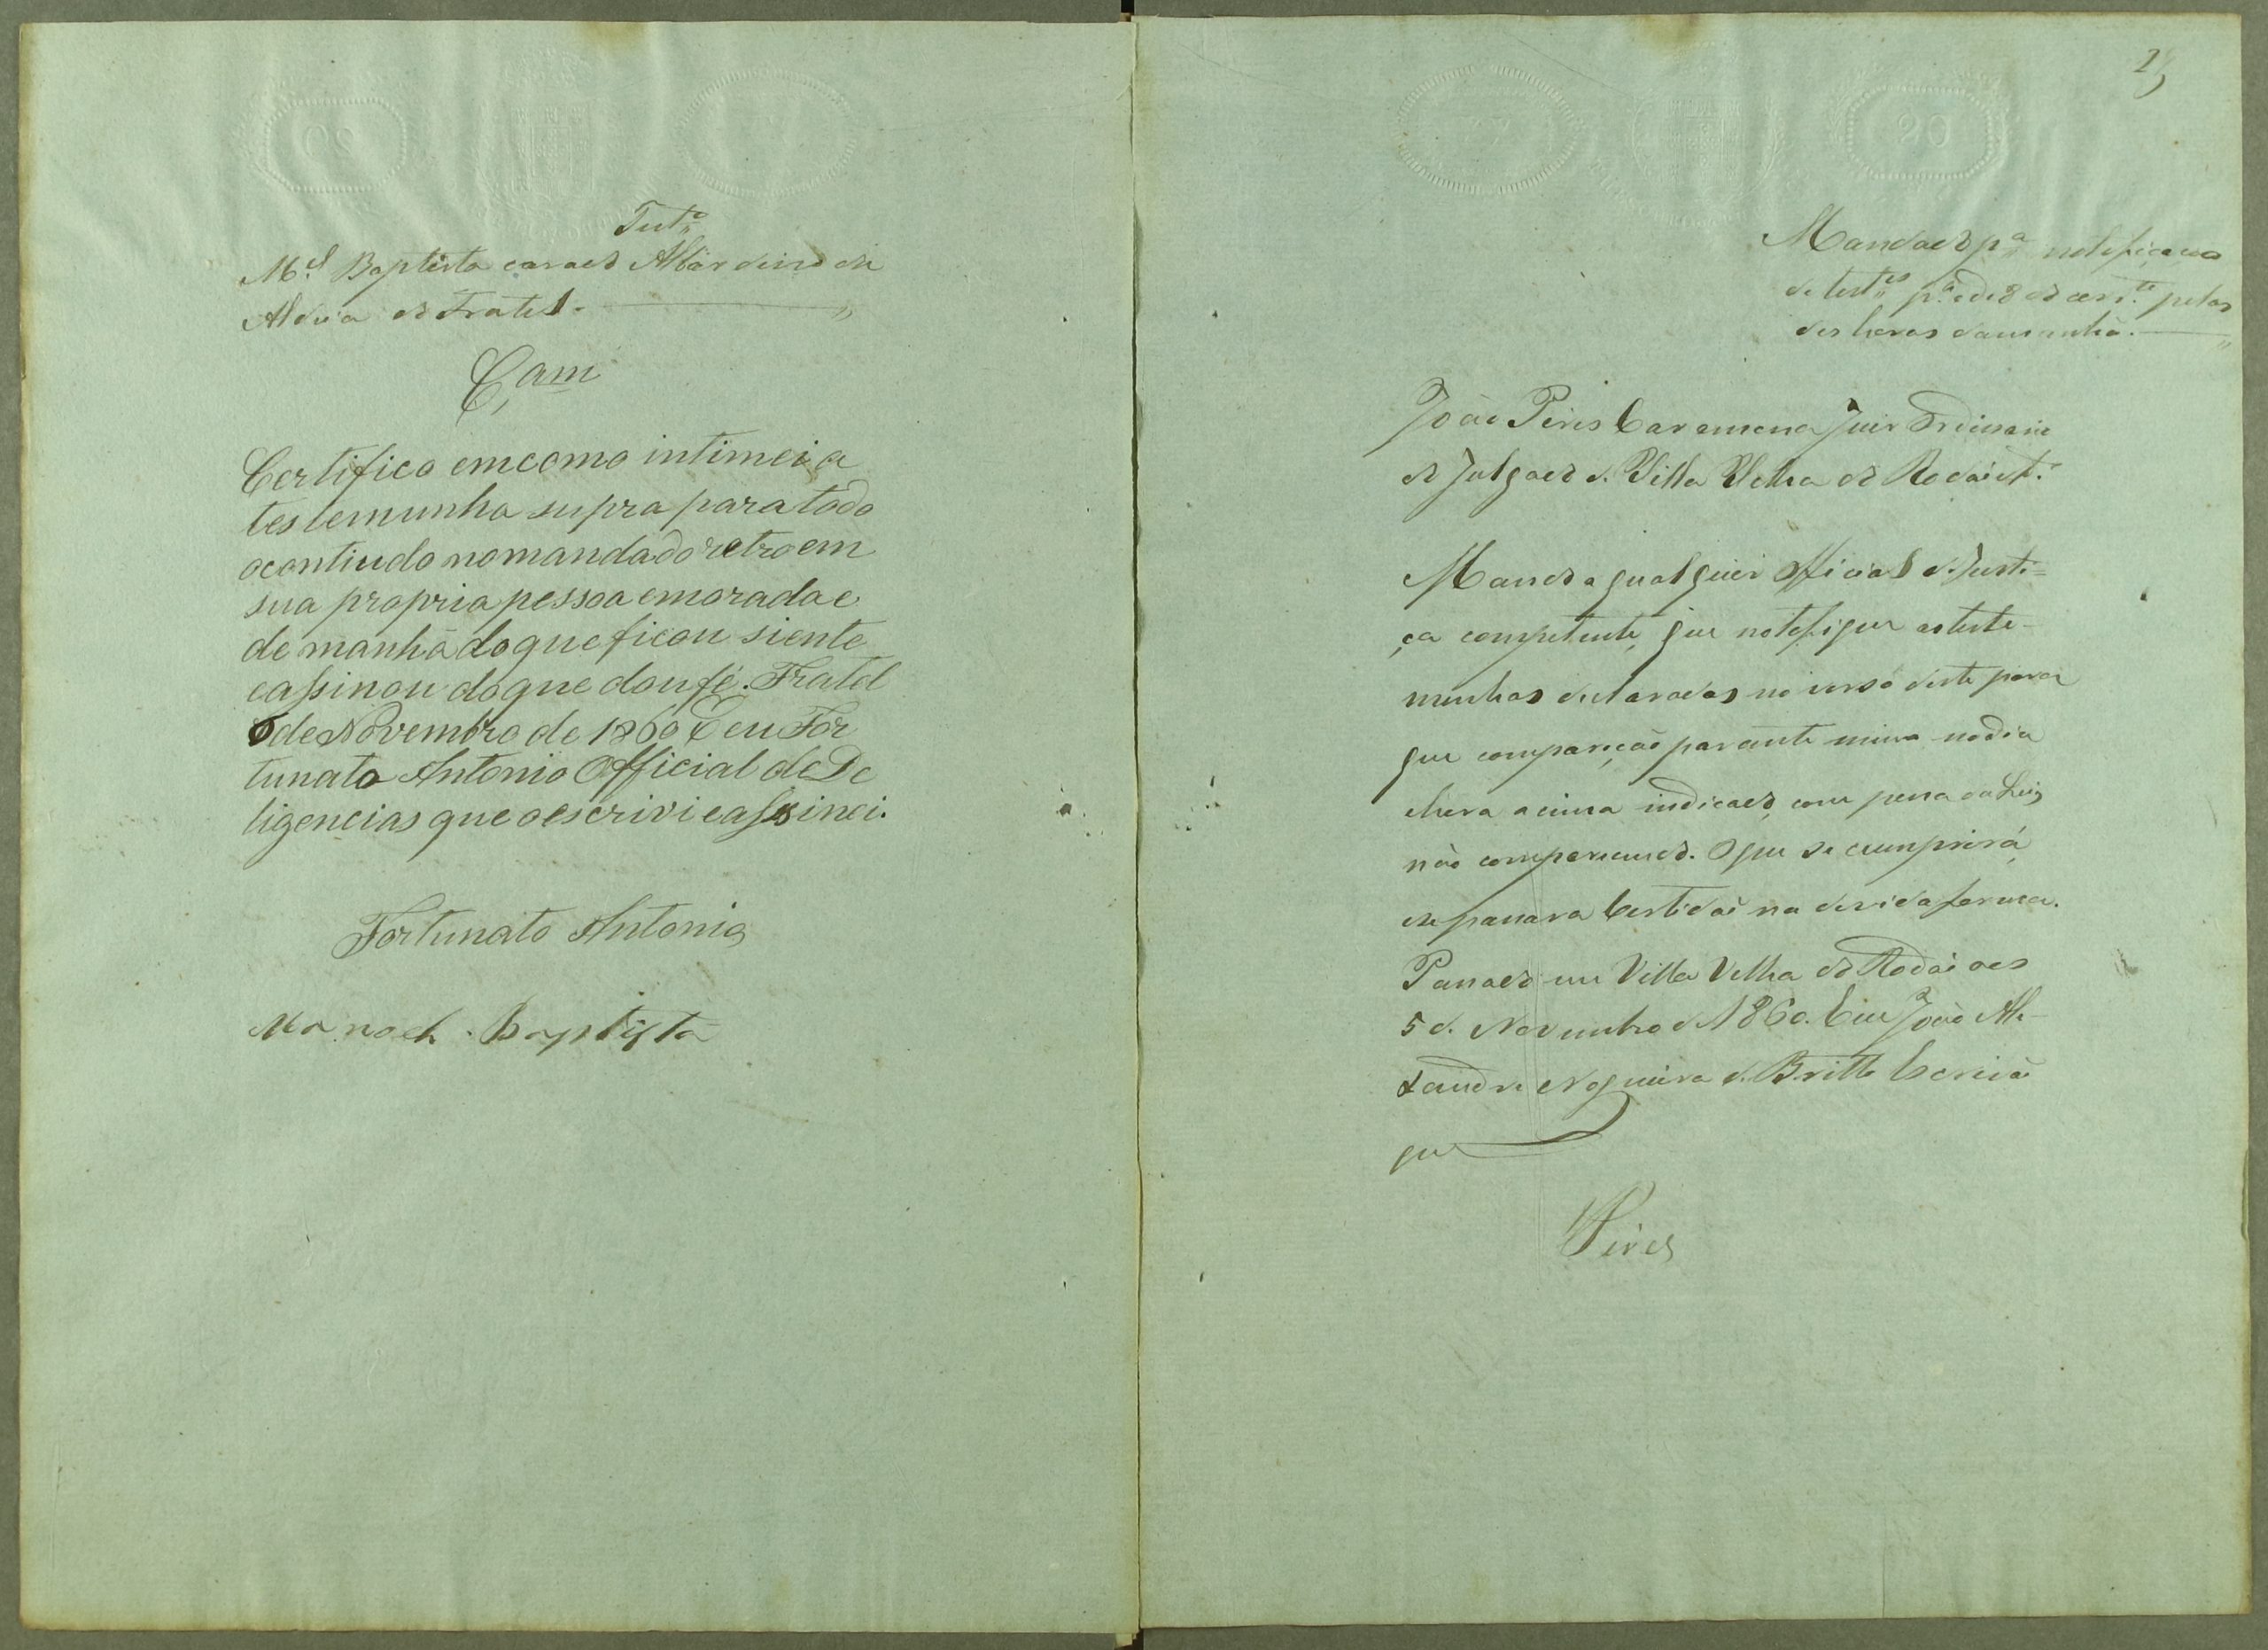 Test.ª
M.el Baptista casado Albardeiro da
Aldeia do Fratel.
C.am
Certifico em como intimei a
testemunha supra para todo
o contiudo no mandado retro em
sua propria pessoa e morada e
de manhã do que ficou siente
e assinou do que dou fé. Fratel
6 de Novembro de 1860 E eu For
tunato Antonio Official de De
ligencias que o escrivi e assinei.
Fortunato Antonio
Manoel Baptista
25
20
Mandado p.ª notificação
de test.as p.ª o dia 8 do corr.te pelas
des horas da manhã.
João Pires Caramona Juiz Ordinario
do Julgado de Villa Velha do Rodão etc.ª
Mando a qualquer Official de Justi=
ça competente, que notefique as teste-
munhas declaradas no verso deste para
que compareção parante mim no dia
e hora acima indicado, com pena da Lei
não comparecendo. O que se cumprirá,
e se passara Certidão na devida forma.
Passado em Villa Velha do Rodão aos
5 de Novembro de 1860. E eu João Ale-
xandre Nogueira de Britto Escrivão
que
Pires